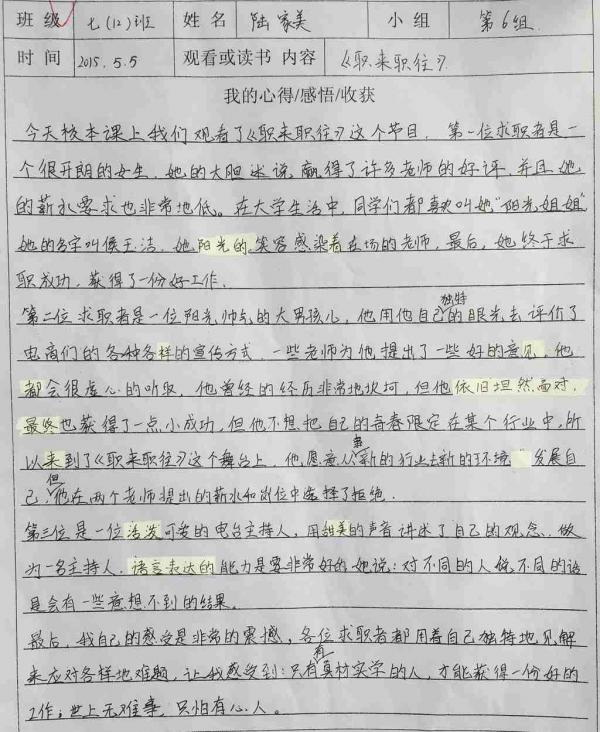 班级 七(12)班 姓名 陆家美 小组 第6组
时间 2015.5.5 观看或读书内容 《职来职往》
我的心得/感悟/收获
今天校本课上我们观看了《职来职往》这个节目。第一位求职者是一
个很开朗的女生,她的大胆述说,赢得了许多老师的好评,并且她
的薪水要求也非常地低。在大学生活中,同学们都喜欢叫她"阳光姐姐"
她的名字叫侯玉洁,她阳光的笑容感染着在场的老师,最后,她终于求
职成功,获得了一份好工作。
第二位求职者是一位阳光帅气的大男孩儿,他用他自己独特的眼光去评价了
电商们的各种各样的宣传方式,一些老师为他提出了一些好的意见,他
都会很虚心的听取,他曾经的经历非常地坎坷,但他依旧坦然面对,
最终也获得了一点小成功,但他不想把自己的青春限定在某个行业中,所
以来到了《职来职往》这个舞台上,他愿意从事新的行业去新的环境发展自
己,但他在两个老师提出的薪水和岗位中选择了拒绝.
第三位是一位活泼可爱的电台主持人,用甜美的声音讲述了自己的观念,做
为一名主持人,语言表达的能力是要非常好的,她说:对不同的人说不同的话
是会有一些意想不到的结果。
最后,我自己的感受是非常的震撼,各位求职者都用着自己独特地见解
来应对各样地难题,让我感受到:只有有真材实学的人,才能获得一份好的
工作;世上无难事,只怕有心人。